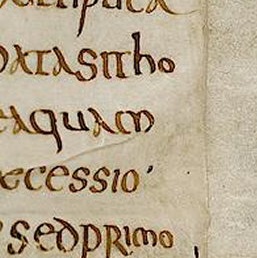 data sit ho
eaquam
excessio
sed primo